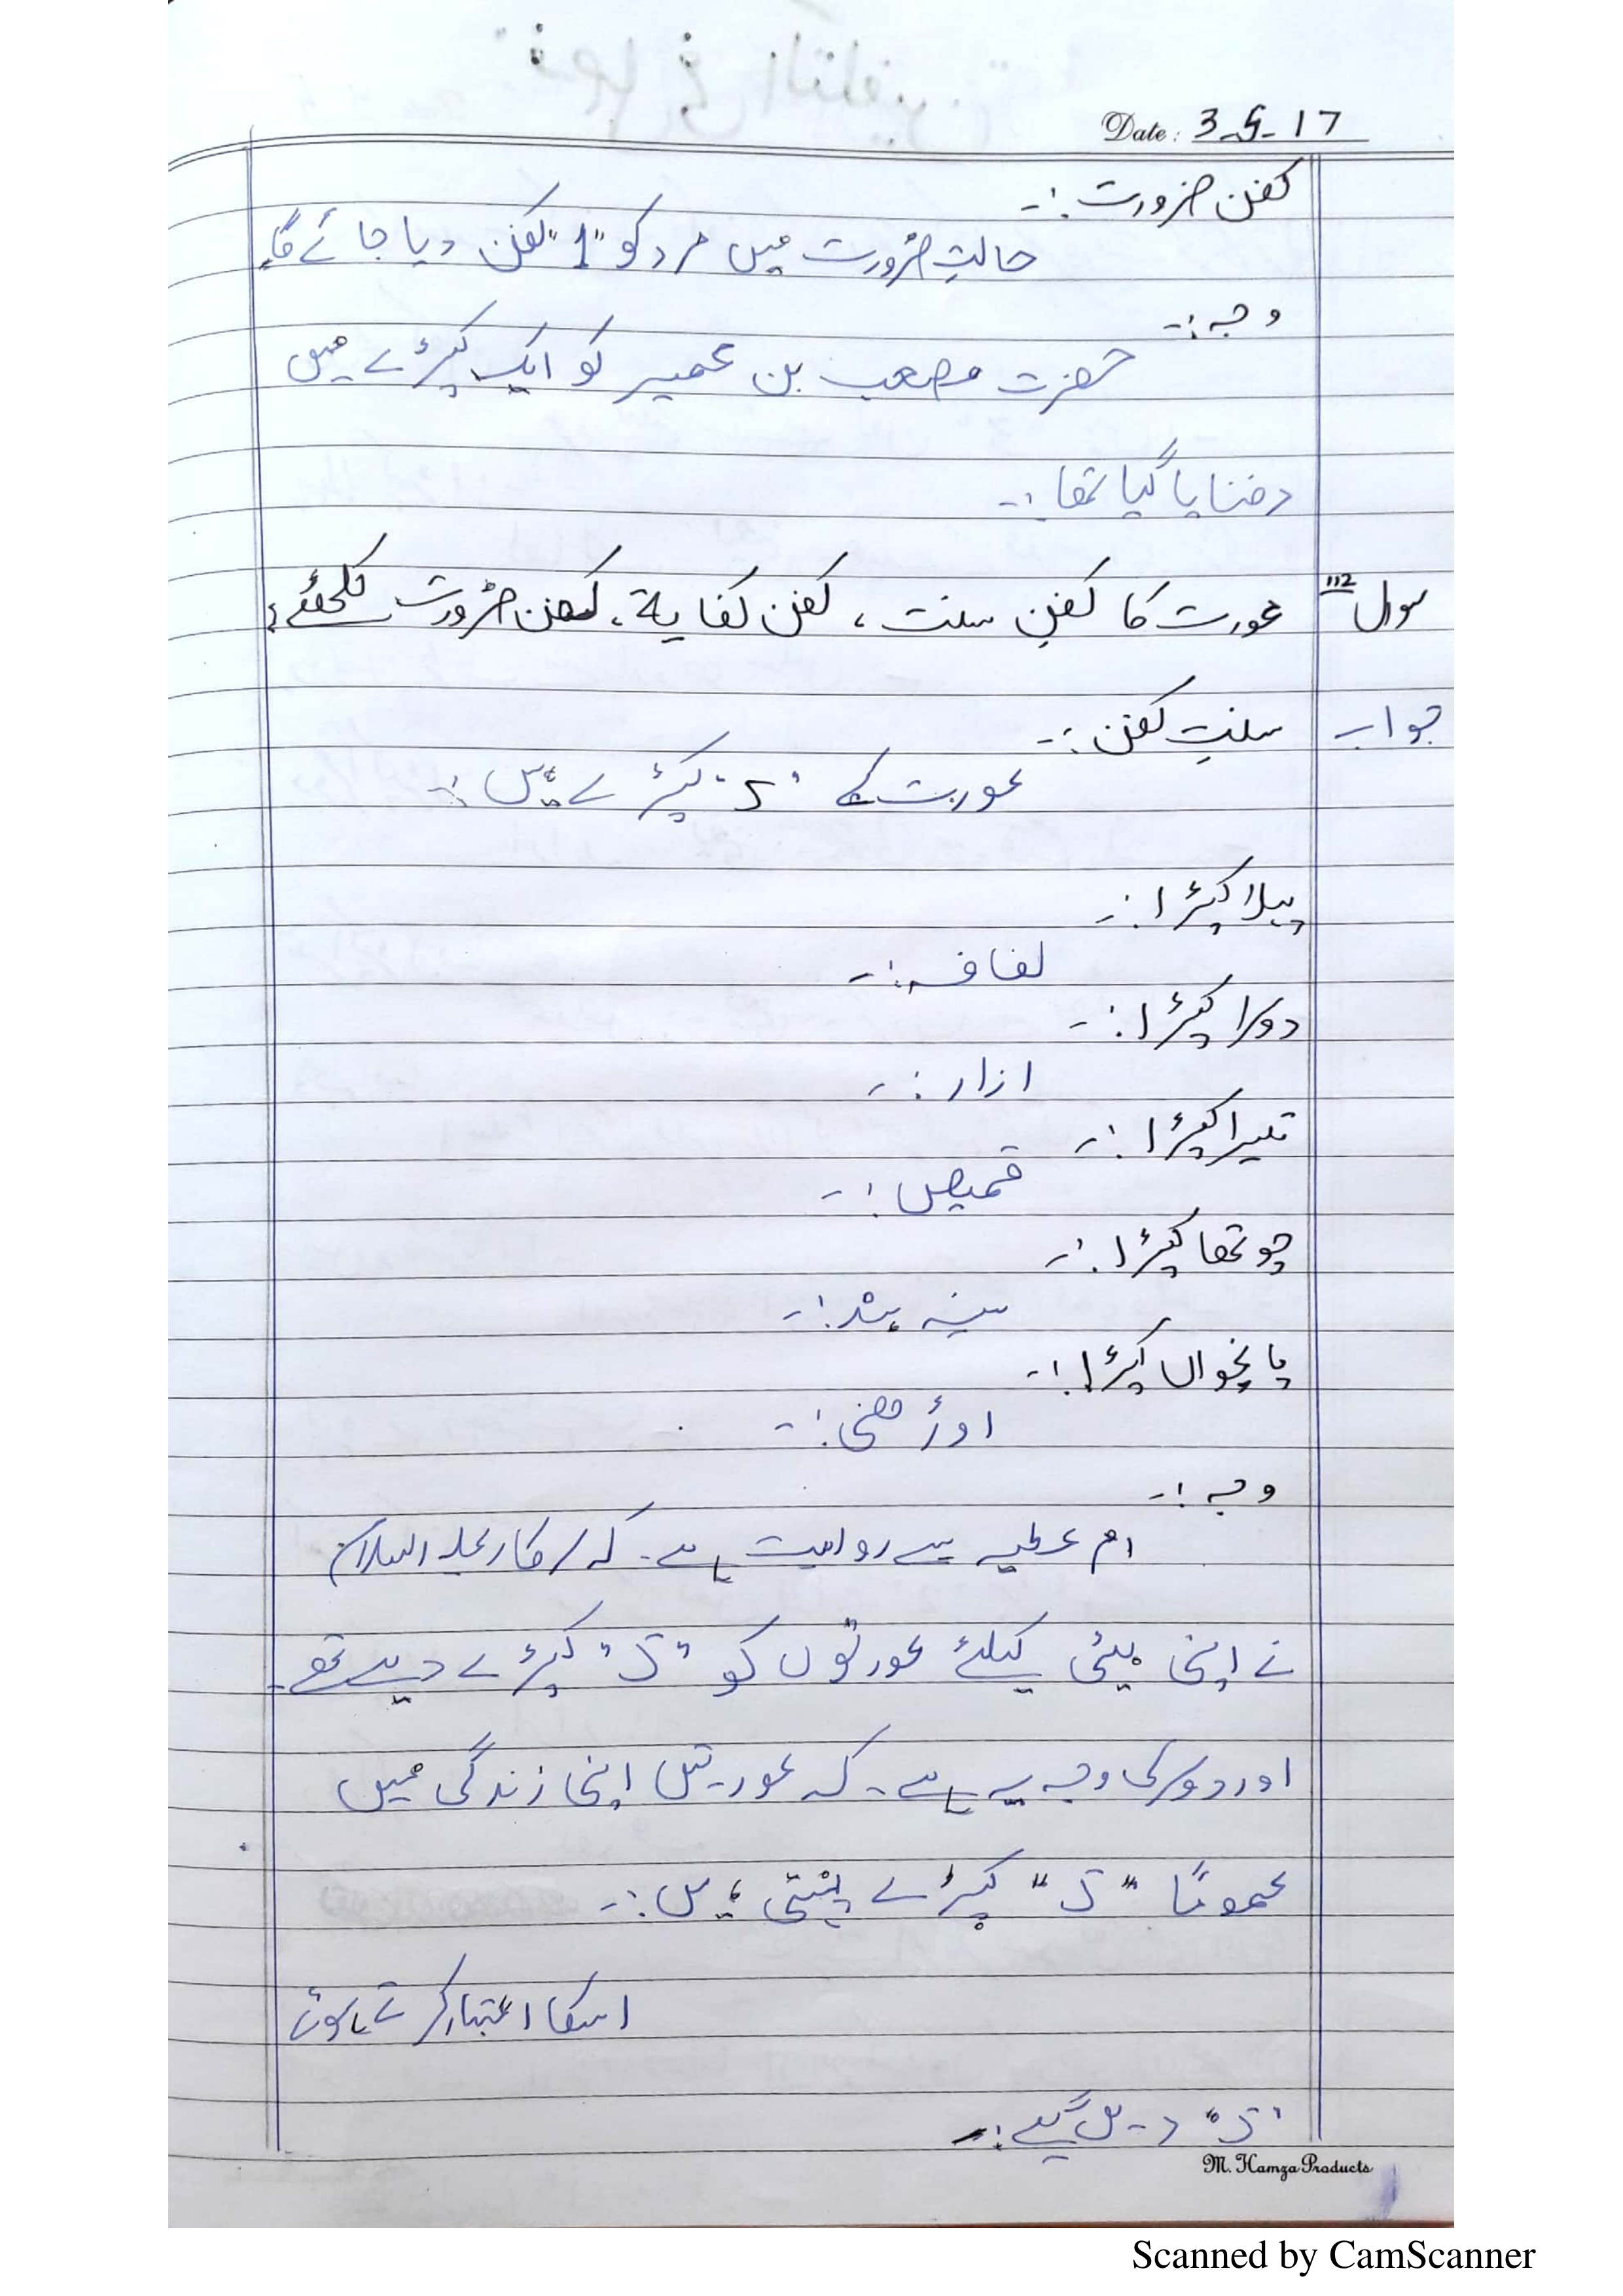 Date: 3-5-17
کفن ضرورت :-
حالتِ ضرورت میں مرد کو "1" کفن دیا جائے گا۔
وجہ :-
حضرت مصعب بن عمیر کو ایک کپڑے میں
دفنایا گیا تھا :-
سوال 112 عورت کا کفنِ سنت ، کفن کفایۃ ، کفن ضرورت لکھئے؟
جواب سنتِ کفن :-
عورت کے "5" کپڑے ہیں :-
پہلا کپڑا :-
لفافہ :-
دوسرا کپڑا :-
ازار :-
تیسرا کپڑا :-
قمیص :-
چوتھا کپڑا :-
سینہ بند :-
پانچواں کپڑا :-
اوڑھنی :-
وجہ :-
ام عطیہ سے روایت ہے۔ کہ سرکار علیہ السلام
نے اپنی بیٹی کیلئے عورتوں کو "5" کپڑے دیے تھے۔
اور دوسری وجہ یہ ہے۔ کہ عورتیں اپنی زندگی میں
عموماً "5" کپڑے پہنتی ہیں :-
اسکا اعتبار کرتے ہوئے
"5" دیں گے :-
M. Hamza Products
Scanned by CamScanner